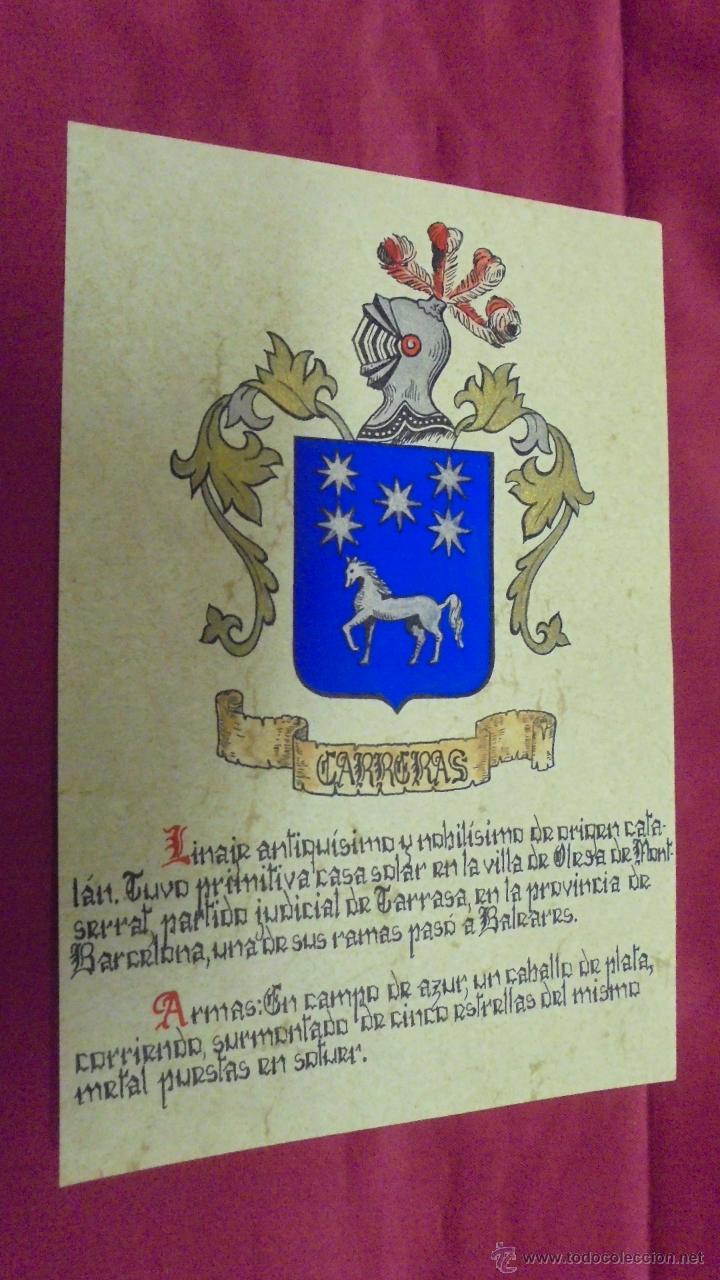 CARRERAS
Linaje antiquísimo y nobilísimo de origen cata-
lán. Tuvo primitiva casa solar en la villa de Olesa de Mont-
serrat, partido judicial de Tarrasa, en la provincia de
Barcelona, una de sus ramas pasó a Baleares.
Armas: En campo de azur, un caballo de plata,
corriendo, surmontado de cinco estrellas del mismo
metal puestas en sotuer.
www.todocoleccion.net